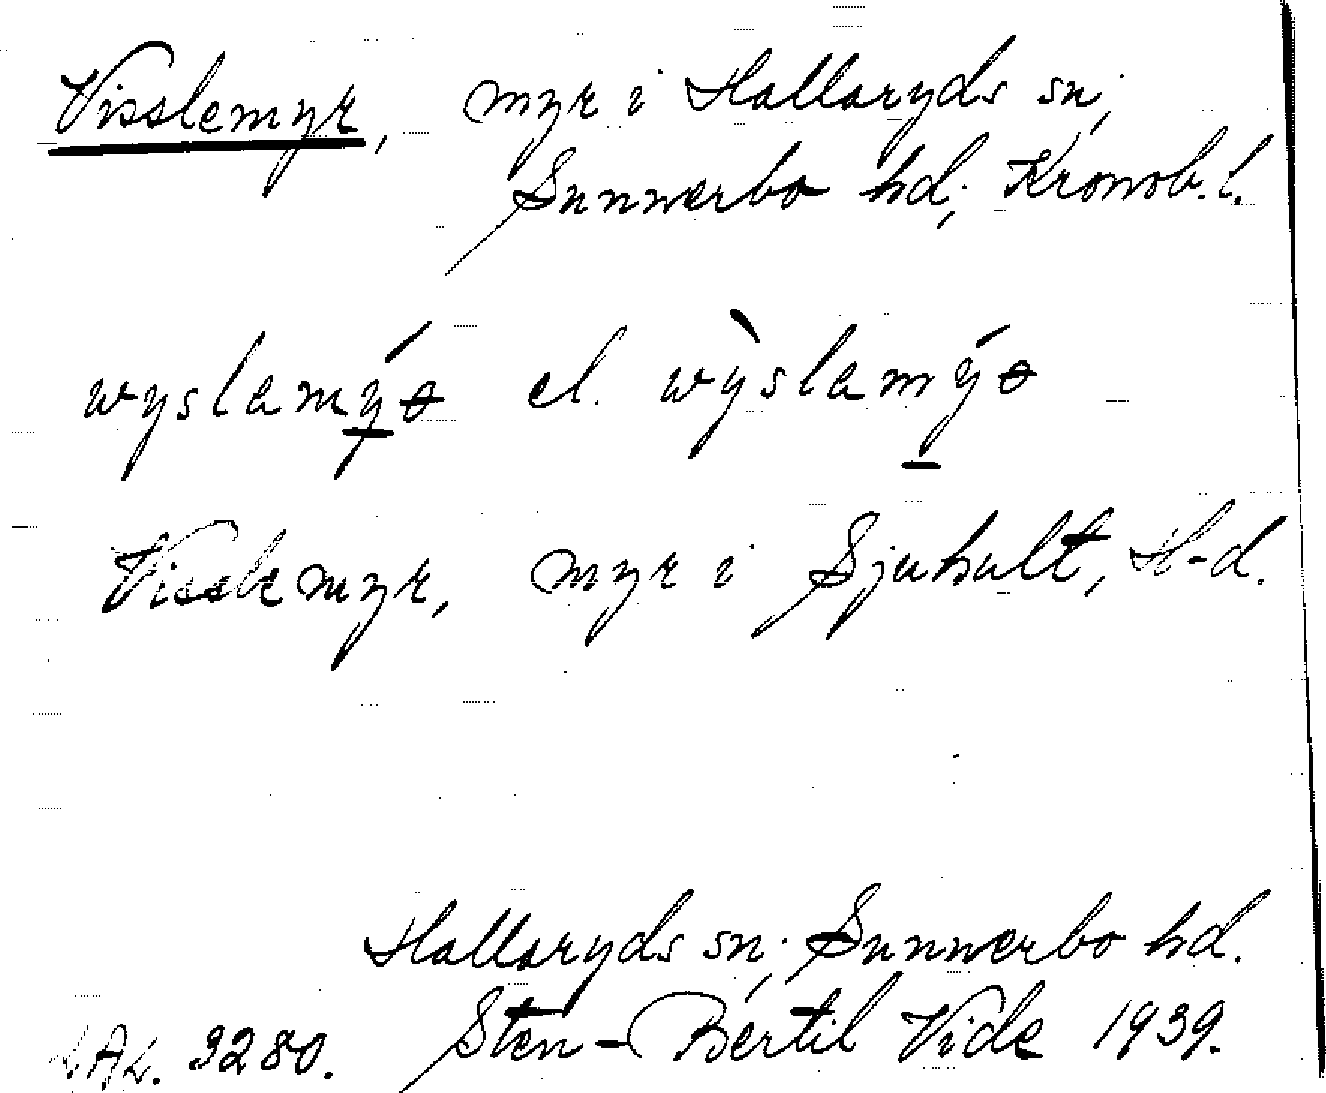 Visslemyr, myr i Hallaryds sn,
Sunnerbo hd, Kronob. l.
wyslamýꝋ el. wỳslamýꝋ
Visslemyr, myr i Sjuhult, H-d.
Hallaryds sn, Sunnerbo hd.
LAL. 3280. Sten-Bertil Vide 1939.